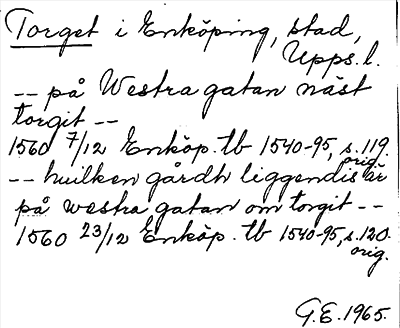 Torget i Enköping, stad,
Upps. l.
-- på Westra gatan näst
torgit --
1560 7/12 Enköp. tb 1540-95, s. 119.
orig.
-- huilken gårdh liggendis är
på westra gatan om torgit --
1560 23/12 Enköp. tb 1540-95, s. 120.
orig.
G.E. 1965.